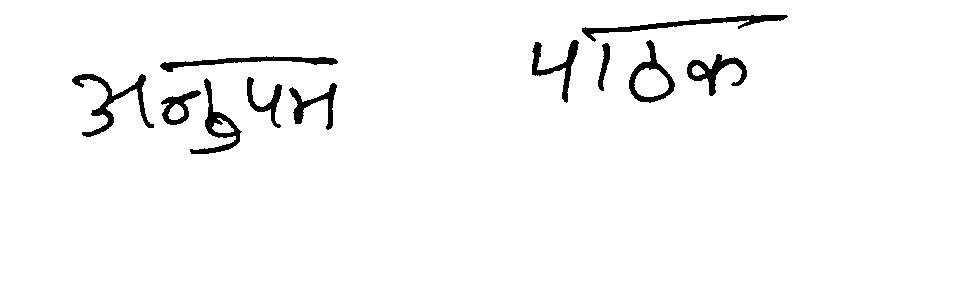 अनुपम पाठक